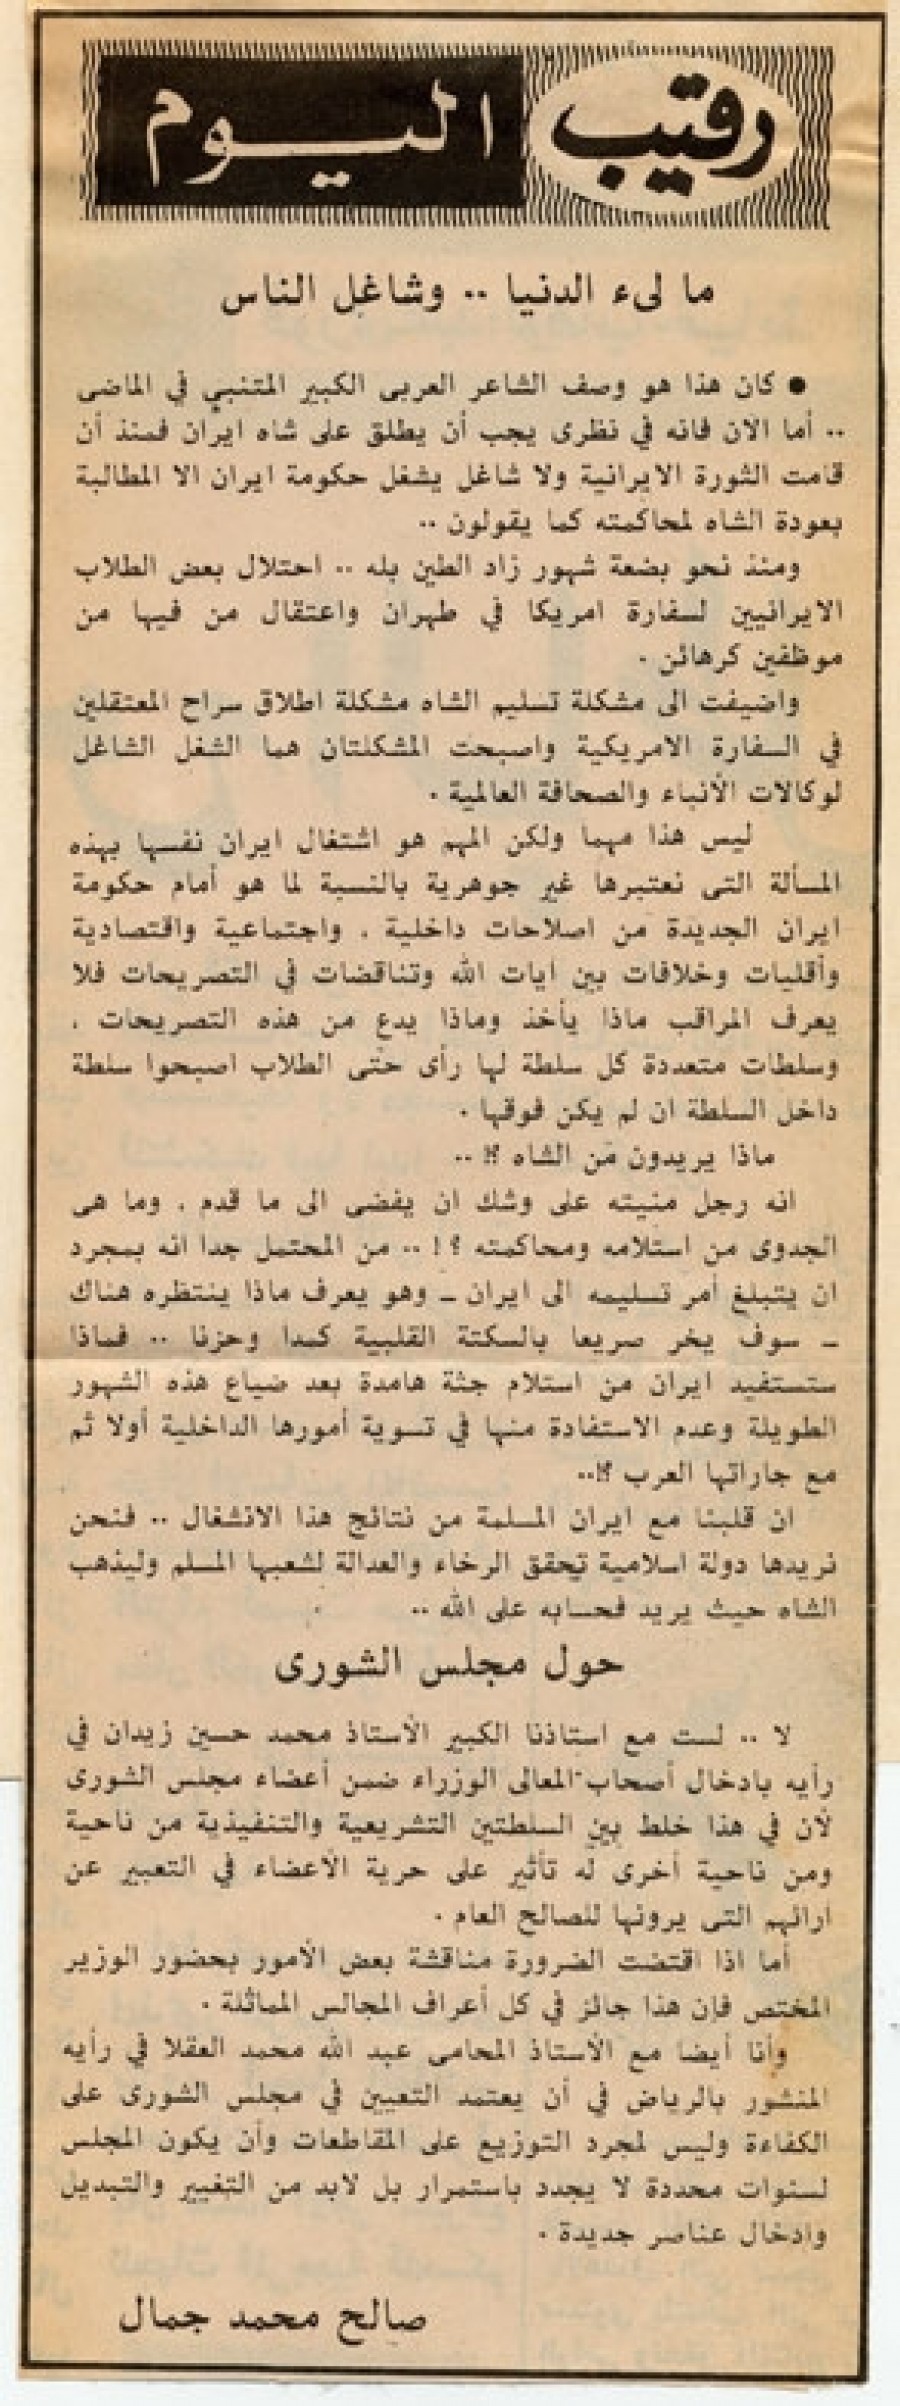 رقيب اليوم
مالىء الدنيا .. وشاغل الناس
● كان هذا هو وصف الشاعر العربى الكبير المتنبي في الماضى
.. أما الآن فانه في نظرى يجب أن يطلق على شاه ايران فمنذ أن
قامت الثورة الايرانية ولا شاغل يشغل حكومة ايران الا المطالبة
بعودة الشاه لمحاكمته كما يقولون ..
ومنذ نحو بضعة شهور زاد الطين بله .. احتلال بعض الطلاب
الايرانيين لسفارة امريكا في طهران واعتقال من فيها من
موظفين كرهائن .
واضيفت الى مشكلة تسليم الشاه مشكلة اطلاق سراح المعتقلين
في السفارة الامريكية واصبحت المشكلتان هما الشغل الشاغل
لوكالات الأنباء والصحافة العالمية .
ليس هذا مهما ولكن المهم هو اشتغال ايران نفسها بهذه
المسألة التى نعتبرها غير جوهرية بالنسبة لما هو أمام حكومة
ايران الجديدة من اصلاحات داخلية ، واجتماعية واقتصادية
وأقليات وخلافات بين ايات الله وتناقضات في التصريحات فلا
يعرف المراقب ماذا يأخذ وماذا يدع من هذه التصريحات ،
وسلطات متعددة كل سلطة لها رأى حتى الطلاب اصبحوا سلطة
داخل السلطة ان لم يكن فوقها .
ماذا يريدون من الشاه ؟! ..
انه رجل منيته على وشك ان يفضى الى ما قدم ، وما هى
الجدوى من استلامه ومحاكمته ؟ ! .. من المحتمل جدا انه بمجرد
ان يتبلغ أمر تسليمه الى ايران ـ وهو يعرف ماذا ينتظره هناك
ـ سوف يخر صريعا بالسكتة القلبية كمدا وحزنا .. فماذا
ستستفيد ايران من استلام جثة هامدة بعد ضياع هذه الشهور
الطويلة وعدم الاستفادة منها في تسوية أمورها الداخلية أولا ثم
مع جاراتها العرب ؟!..
ان قلبنا مع ايران المسلمة من نتائج هذا الانشغال .. فنحن
نريدها دولة اسلامية تحقق الرخاء والعدالة لشعبها المسلم وليذهب
الشاه حيث يريد فحسابه على الله ..
حول مجلس الشورى
لا .. لست مع استاذنا الكبير الأستاذ محمد حسين زيدان في
رأيه بادخال أصحاب المعالى الوزراء ضمن أعضاء مجلس الشورى
لأن في هذا خلط بين السلطتين التشريعية والتنفيذية من ناحية
ومن ناحية أخرى له تأثير على حرية الأعضاء في التعبير عن
ارائهم التى يرونها للصالح العام .
أما اذا اقتضت الضرورة مناقشة بعض الأمور بحضور الوزير
المختص فإن هذا جائز في كل أعراف المجالس المماثلة .
وأنا أيضا مع الأستاذ المحامى عبد الله محمد العقلا في رأيه
المنشور بالرياض في أن يعتمد التعيين في مجلس الشورى على
الكفاءة وليس لمجرد التوزيع على المقاطعات وأن يكون المجلس
لسنوات محددة لا يجدد باستمرار بل لابد من التغيير والتبديل
وادخال عناصر جديدة .
صالح محمد جمال